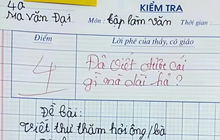 4a
KIỂM TRA
Ma Văn Đại
Môn: tập làm văn Thời gian
Điểm
Lời phê của thầy, cô giáo
4
Đã viết được cái
gì mà dài hả?
Đề bài:
viết thư thăm hỏi ông/bà